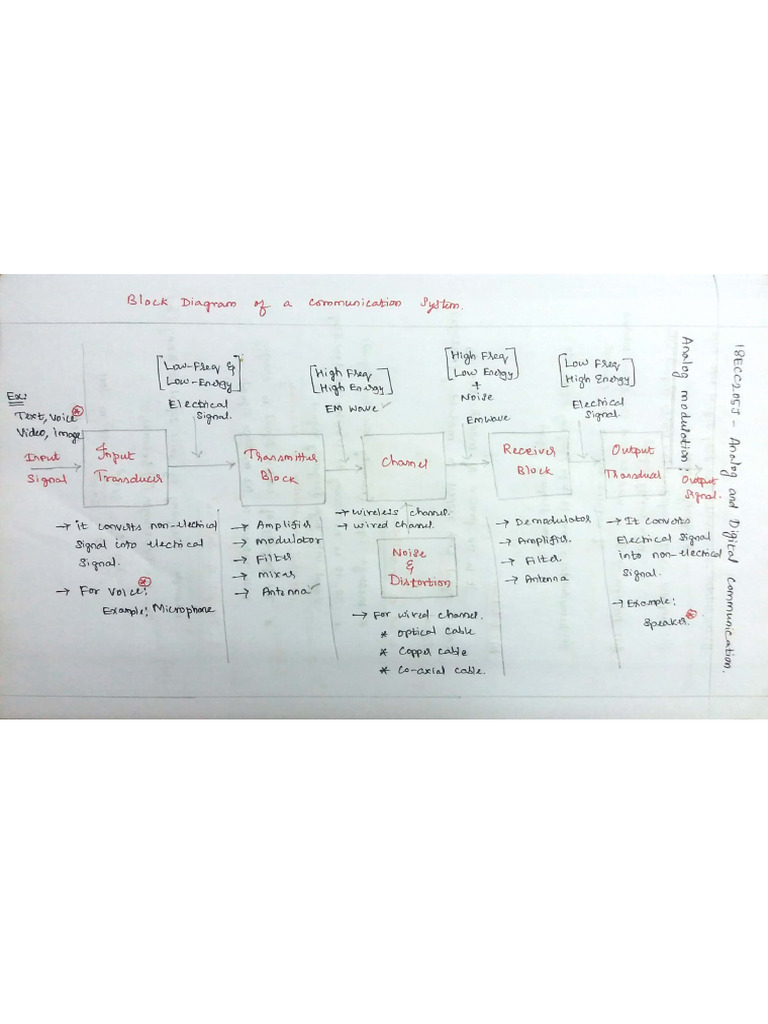 Block Diagram of a Communication System.
18ECC205J - Analog and Digital Communication.
Analog modulation:
Ex:
Text, Voice*
Video, Image
Input
Signal
Input
Transducer
[Low-Freq &
Low-Energy]
Electrical
Signal.
Transmitter
Block
[High Freq
High Energy]
EM wave
Channel
[High Freq
Low Energy]
+
Noise
EM wave
Receiver
Block
[Low Freq
High Energy]
Electrical
Signal.
Output
Transducer
Output
Signal.
→ it converts non-electrical
signal into electrical
signal.
→ For voice:*
Example: Microphone
→ Amplifier
→ modulator
→ Filter
→ mixer
→ Antenna ✓
→ wireless channel.
→ wired channel.
Noise
&
Distortion
→ For wired channel.
* optical cable
* Copper cable
* Co-axial cable.
→ Demodulator
→ Amplifier.
→ Filter
→ Antenna
→ It converts
Electrical Signal
into non-electrical
signal.
→ Example:
Speaker.*